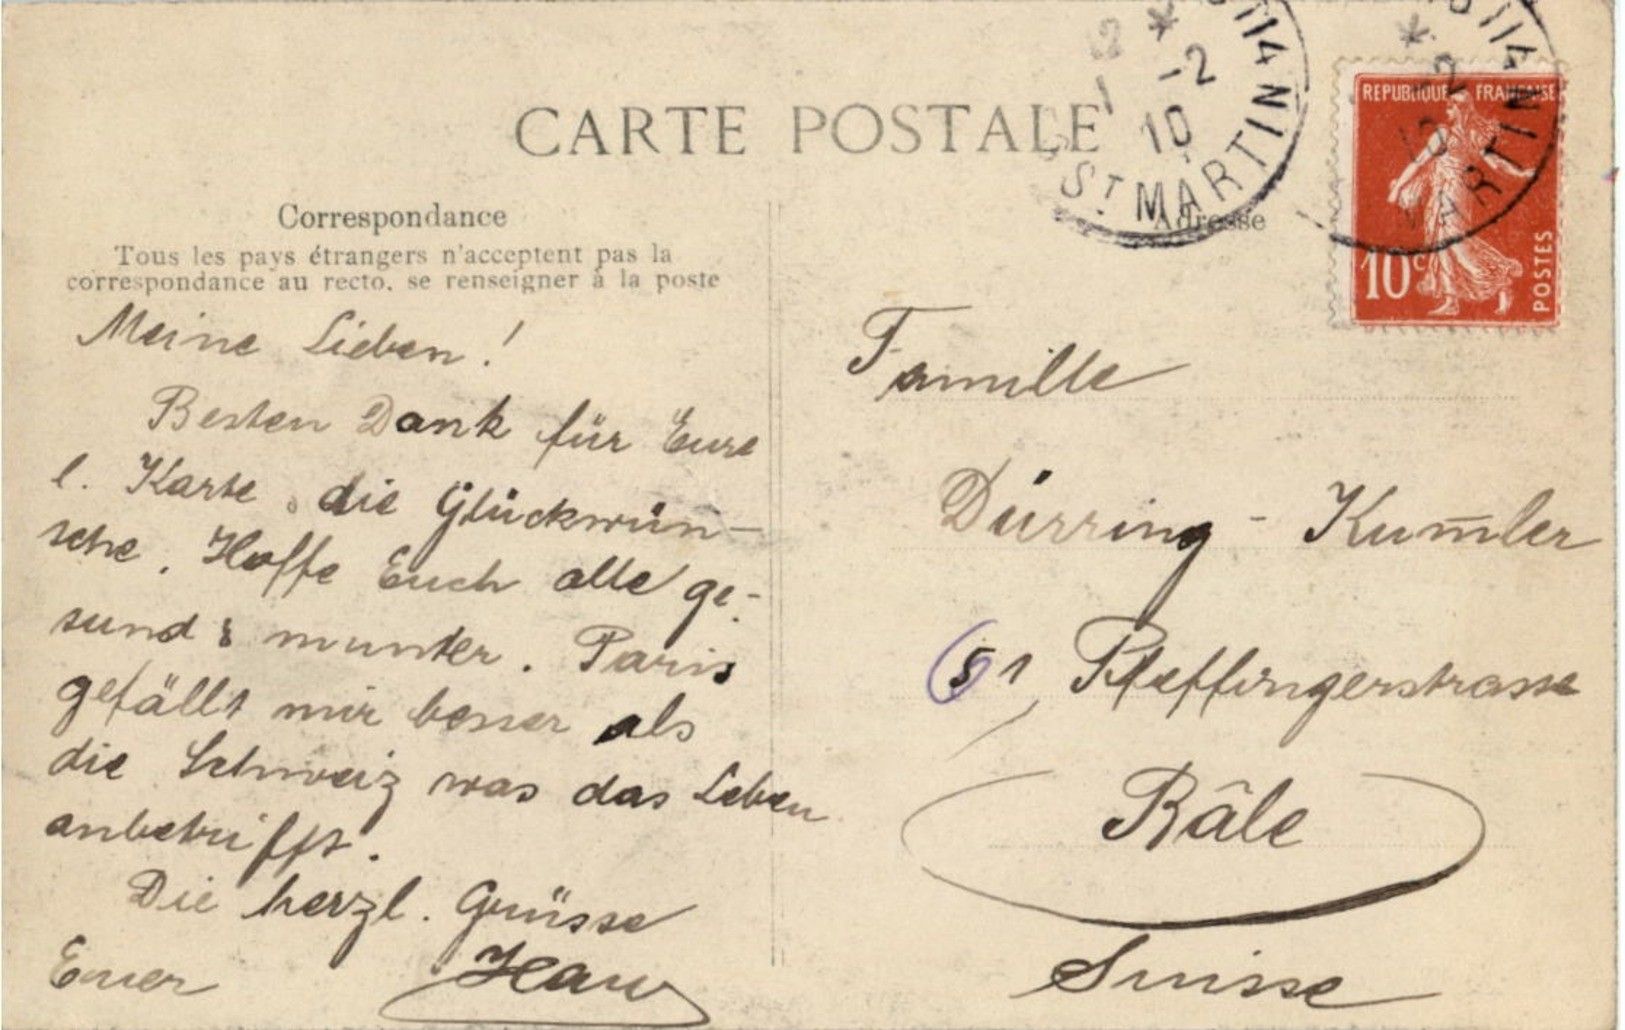 CARTE POSTALE
Correspondance
Tous les pays étrangers n'acceptent pas la
correspondance au recto, se renseigner à la poste
Meine Lieben!
Besten Dank für Eure
l. Karte, die Glückwün-
sche. Hoffe Euch alle ge-
sund & munter. Paris
gefällt mir besser als
die Schweiz was das Leben
anbetrifft.
Die herzl. Grüsse
Euer
Adresse
Famille
Dürring - Kum̅ler
51 Pfeffingerstrasse
Bâle
Suisse
-2
10
ST MARTIN
REPUBLIQUE FRANÇAISE
10c
POSTES
-2
10
MARTIN